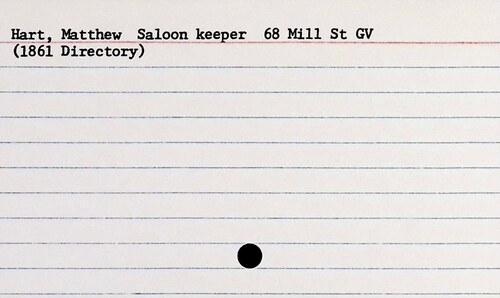 Hart, Matthew  Saloon keeper  68 Mill St GV
(1861 Directory)